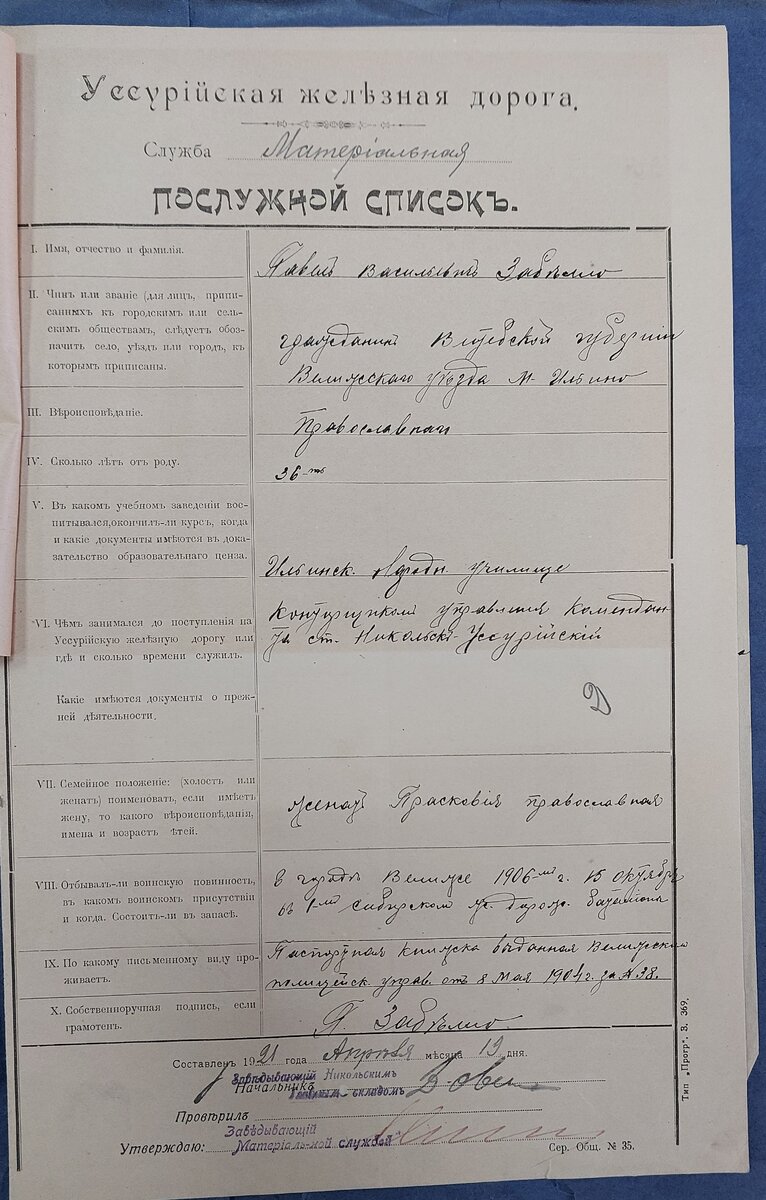 Уссурійская желѣзная дорога.
Служба Матеріальная
ПОСЛУЖНОЙ СПИСОКЪ.
I. Имя, отчество и фамилія.
Павелъ Васильевичъ Забѣлло
II. Чинъ или званіе (для лицъ, припи-
санныхъ къ городскимъ или сель-
скимъ обществамъ, слѣдуетъ обоз-
начить село, уѣздъ или городъ, къ
которымъ приписаны.
гражданинъ Витебской губерніи
Велижскаго уѣзда м. Ильино
III. Вѣроисповѣданіе.
Православная
IV. Сколько лѣтъ отъ роду.
36-ть
V. Въ какомъ учебномъ заведеніи вос-
питывался, окончилъ-ли курсъ, когда
и какіе документы имѣются въ дока-
зательство образовательнаго ценза.
Ильинск. училище
VI. Чѣмъ занимался до поступленія на
Уссурійскую желѣзную дорогу или
гдѣ и сколько времени служилъ.
Конторщикомъ управленія Комендан-
та ст. Никольскъ-Уссурійскій
Какіе имѣются документы о преж-
ней дѣятельности.
VII. Семейное положеніе: (холостъ или
женатъ) поименовать, если имѣетъ
жену, то какого вѣроисповѣданія,
имена и возрастъ ѣтей.
женатъ Прасковія православная
VIII. Отбывалъ-ли воинскую повинность,
въ какомъ воинскомъ присутствіи
и когда. Состоитъ-ли въ запасѣ.
въ городѣ Велиже 1906-мъ г. 15 октября
въ 1-мъ сибирском ж. дорож. баталіонѣ
IX. По какому письменному виду про-
живаетъ.
Паспортная книжка выданная Велижским
полицейск. управ. отъ 8 Мая 1904 г. за № 38.
X. Собственноручная подпись, если
грамотенъ.
П. Забѣлло
Составленъ 1921 года Апрѣля мѣсяца 13 дня.
Завѣдывающій Никольскимъ
Начальникъ
Главнымъ складомъ
Провѣрилъ
Завѣдывающій
Утверждаю: Матеріальной службой
Сер. Общ. № 35.
Тип. „Прогр“. З. 369.